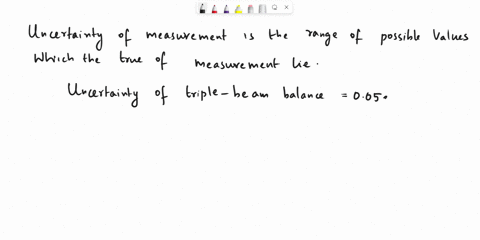 Uncertainty of measurement is the range of possible values
which the true of measurement lie.
Uncertainty of triple-beam balance = 0.05.